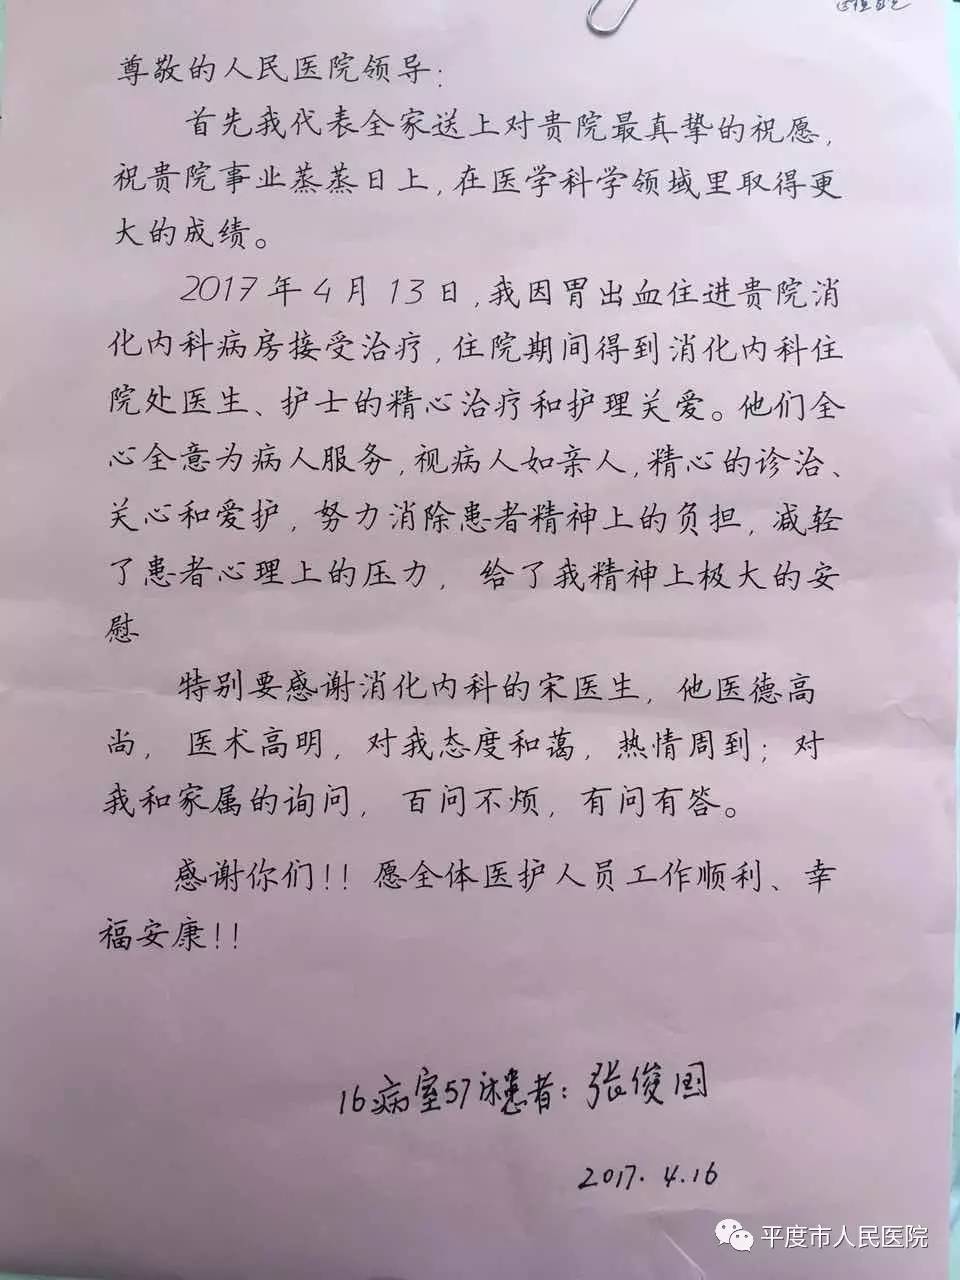 尊敬的人民医院领导:
首先我代表全家送上对贵院最真挚的祝愿,
祝贵院事业蒸蒸日上,在医学科学领域里取得更
大的成绩。
2017年4月13日,我因胃出血住进贵院消
化内科病房接受治疗,住院期间得到消化内科住
院处医生、护士的精心治疗和护理关爱。他们全
心全意为病人服务,视病人如亲人,精心的诊治、
关心和爱护,努力消除患者精神上的负担,减轻
了患者心理上的压力, 给了我精神上极大的安
慰
特别要感谢消化内科的宋医生,他医德高
尚, 医术高明,对我态度和蔼,热情周到;对
我和家属的询问, 百问不烦,有问有答。
感谢你们!!愿全体医护人员工作顺利、幸
福安康!!
16病室57床患者:张俊国
2017.4.16
平度市人民医院